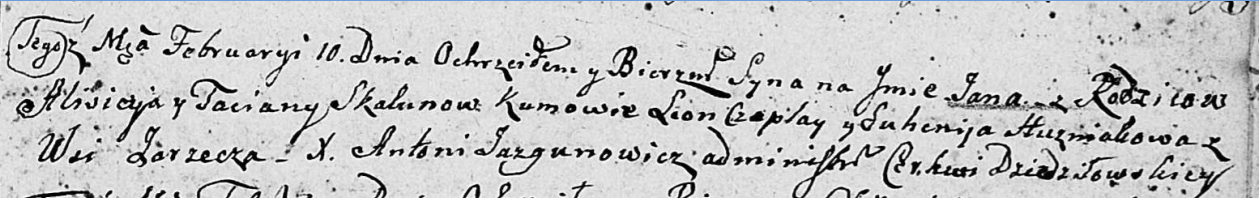 Tegoż Mca Februaryi 10. Dnia Ochrzciłem y Bierzm Syna na Jmie Jana z Rodzicow
Alisieja y Taciany Skakunow Kumowie Leon Czaplay y Euhenija Huzniakowa z
Wsi Zarzecza - X. Antoni Jazgunowicz administr Cerkwi Dziedziłowskiey